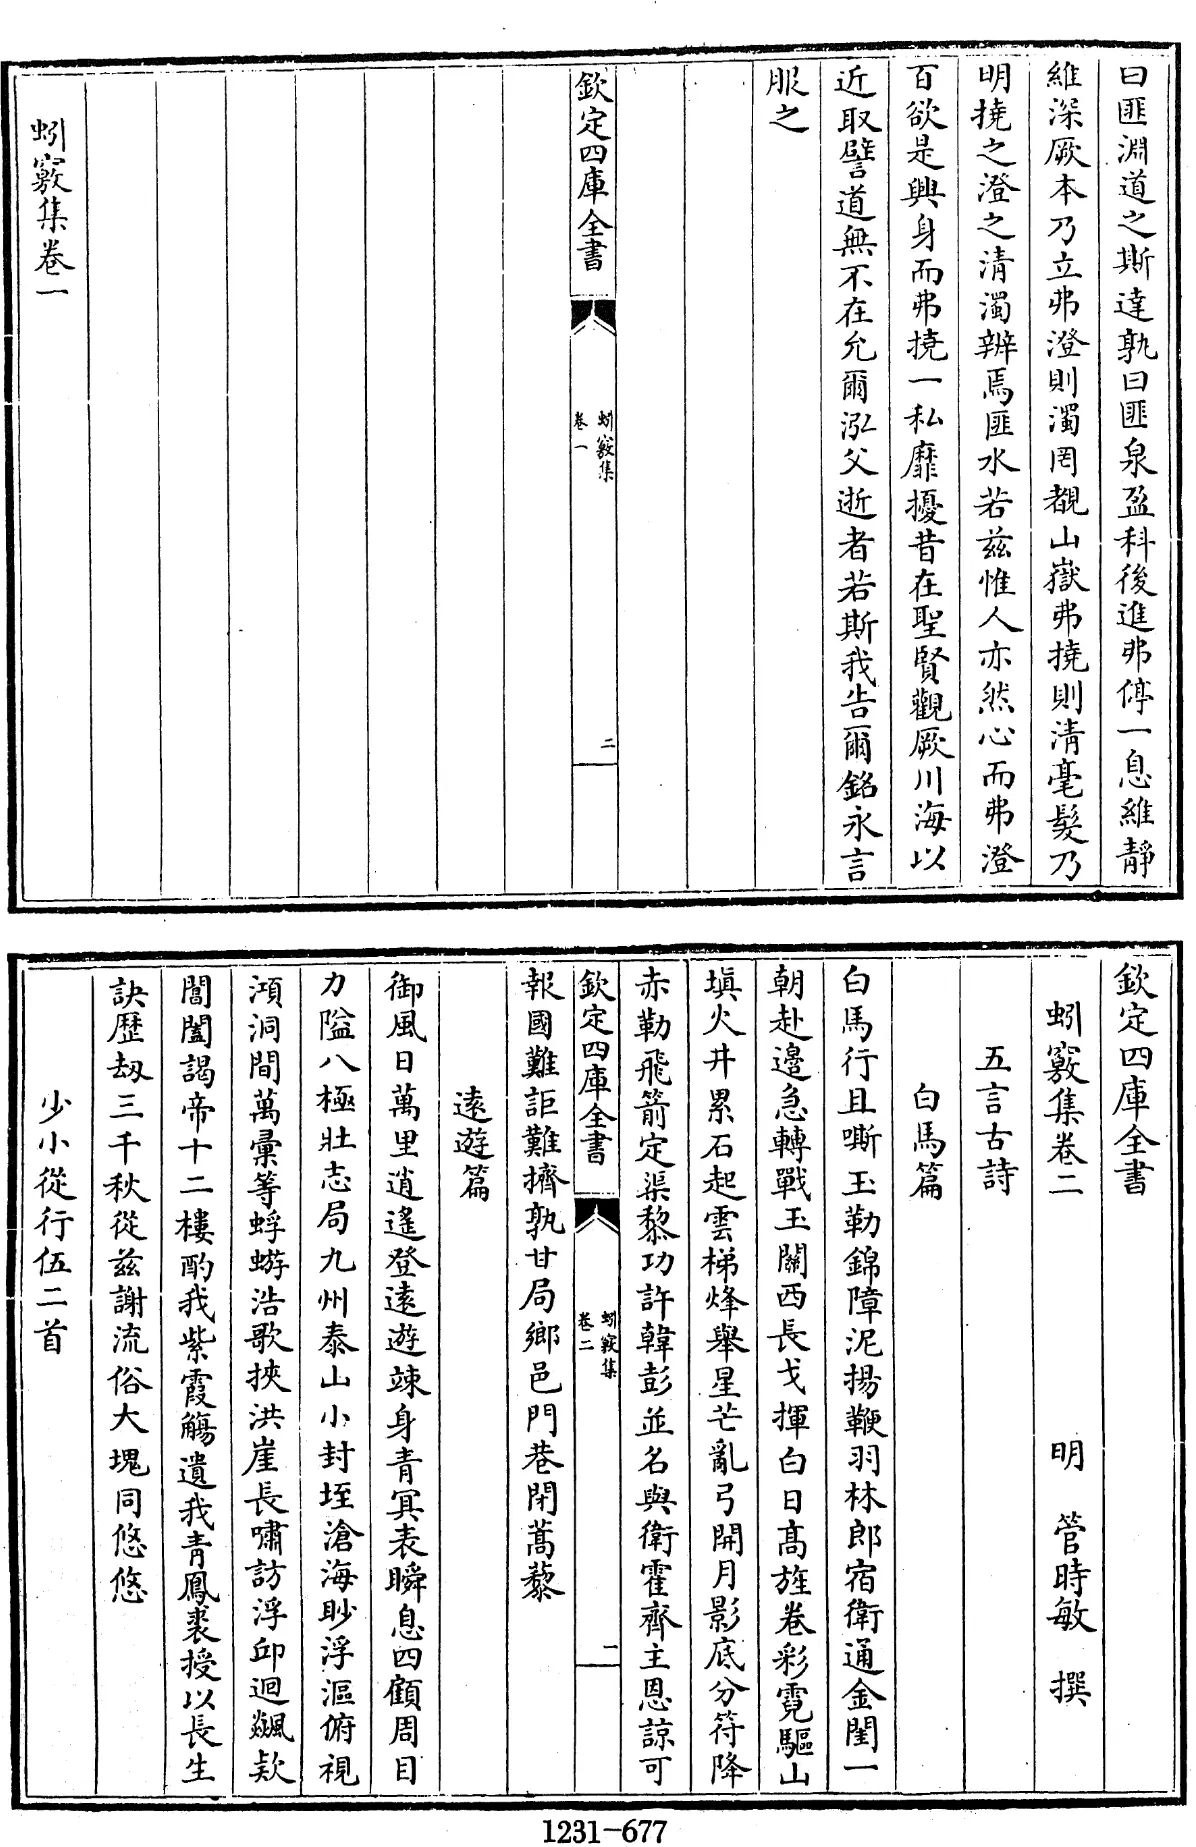 曰匪淵道之斯達孰曰匪泉盈科後進弗停一息維靜
維深厥本乃立弗澄則濁罔覩山嶽弗撓則清毫髮乃
明撓之澄之清濁辨焉匪水若兹惟人亦然心而弗澄
百欲是興身而弗撓一私靡擾昔在聖賢觀厥川海以
近取譬道無不在允爾泓父逝者若斯我告爾銘永言
服之
欽定四庫全書
蚓竅集
卷一
二
蚓竅集卷一
欽定四庫全書
蚓竅集卷二
明 管時敏 撰
五言古詩
白馬篇
白馬行且嘶玉勒錦障泥揚鞭羽林郎宿衛通金閨一
朝赴邉急轉戰玉關西長戈揮白日髙旌卷彩霓驅山
塡火井累石起雲梯烽舉星芒亂弓開月影底分符降
赤勒飛箭定渠黎功許韓彭並名與衛霍齊主恩諒可
欽定四庫全書
蚓竅集
卷二
一
報國難詎難擠孰甘局鄉邑門巷閉蒿藜
逺遊篇
御風日萬里逍遙登逺遊竦身青冥表瞬息四顧周目
力隘八極壯志局九州泰山小封垤滄海眇浮漚俯視
澒洞間萬彚等蜉蝣浩歌挾洪崖長嘯訪浮邱迴飇款
閶闔謁帝十二樓酌我紫霞觴遺我青鳳裘授以長生
訣歴刼三千秋從兹謝流俗大塊同悠悠
少小從行伍二首
1231-677